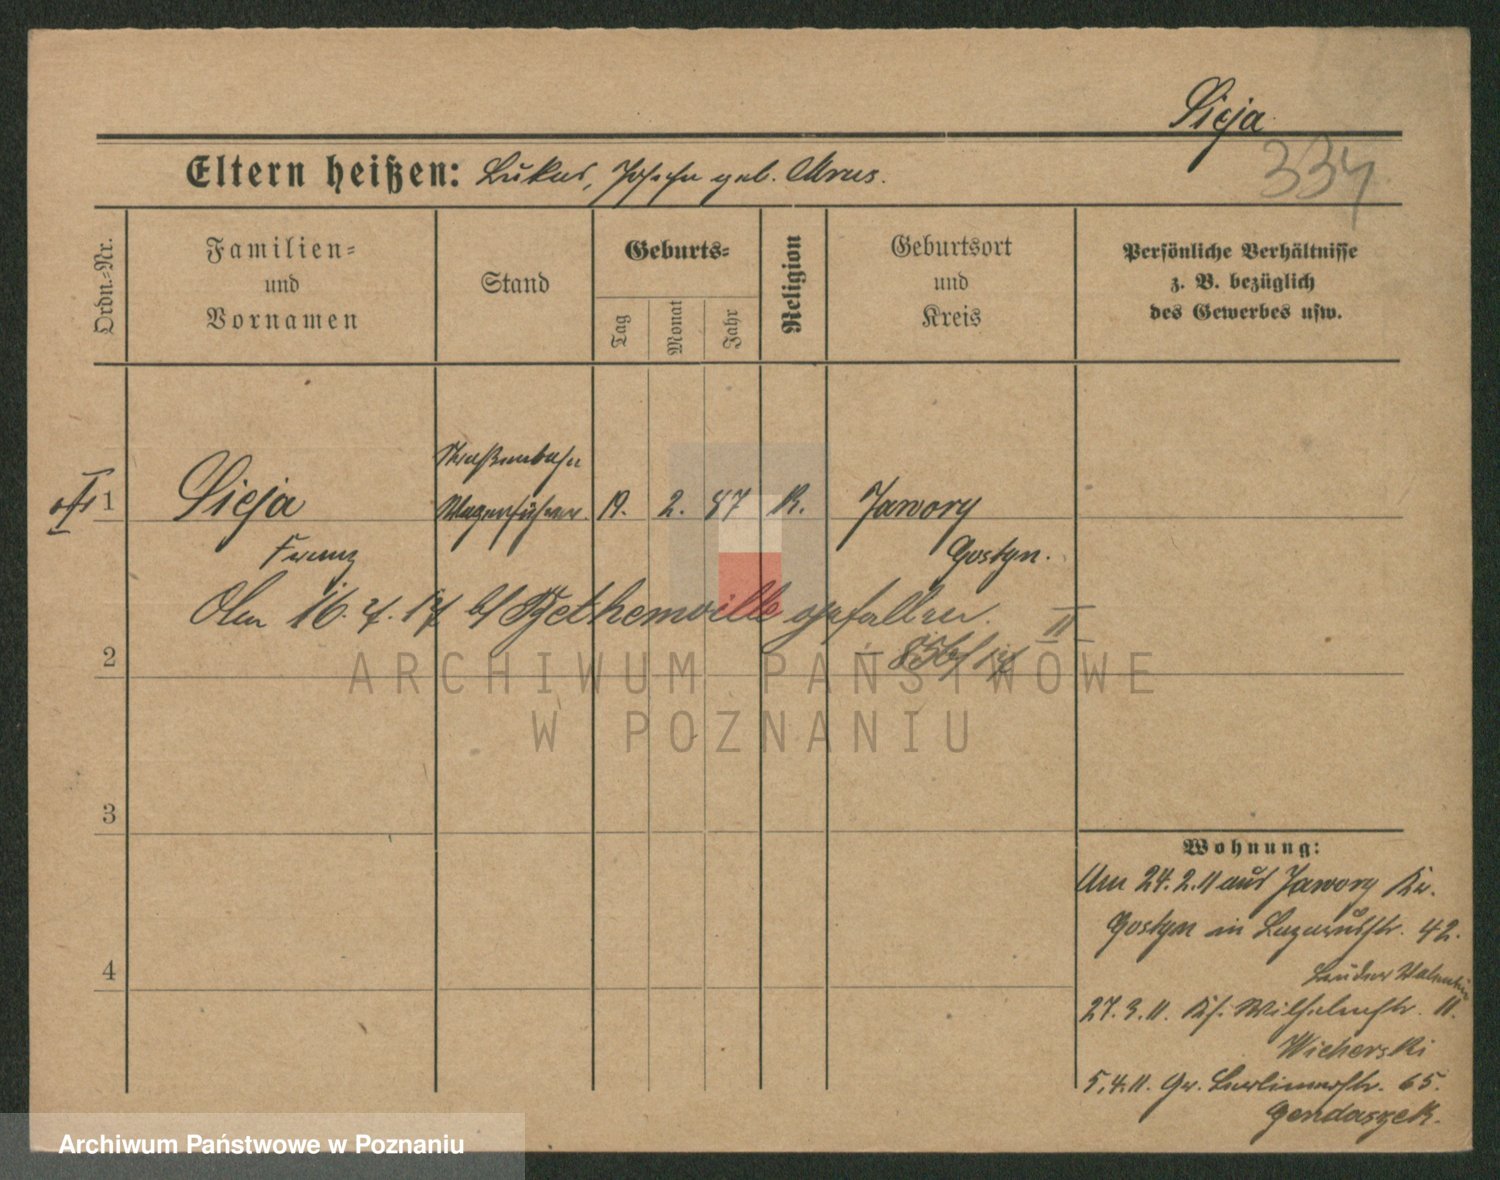 Sieja
334
Eltern heißen: Lukas, Josefa geb. Mrus.
Ordn.=Nr.
Familien=
und
Vornamen
Stand
Geburts=
Tag
Monat
Jahr
Religion
Geburtsort
und
Kreis
Persönliche Verhältnisse
z. B. bezüglich
des Gewerbes usw.
1
Sieja
Franz
Straßenbahn
Wagenführer.
19. 2. 87 K.
Jawory
Gostyn.
Am 16. 4. 17 b/ Bethenville gefallen. II
2
ARCHIWUM PAŃSTWOWE
W POZNANIU
3
4
Wohnung:
Am 24. 2. 11 aus Jawory Kr.
Gostyn in Lazarusstr. 42.
bei
27. 3. 11. Kf. Wilhelmstr. 11.
Wicherski
5. 4. 11. Gr. Berlinerstr. 65.
Gendaszek.
Archiwum Państwowe w Poznaniu